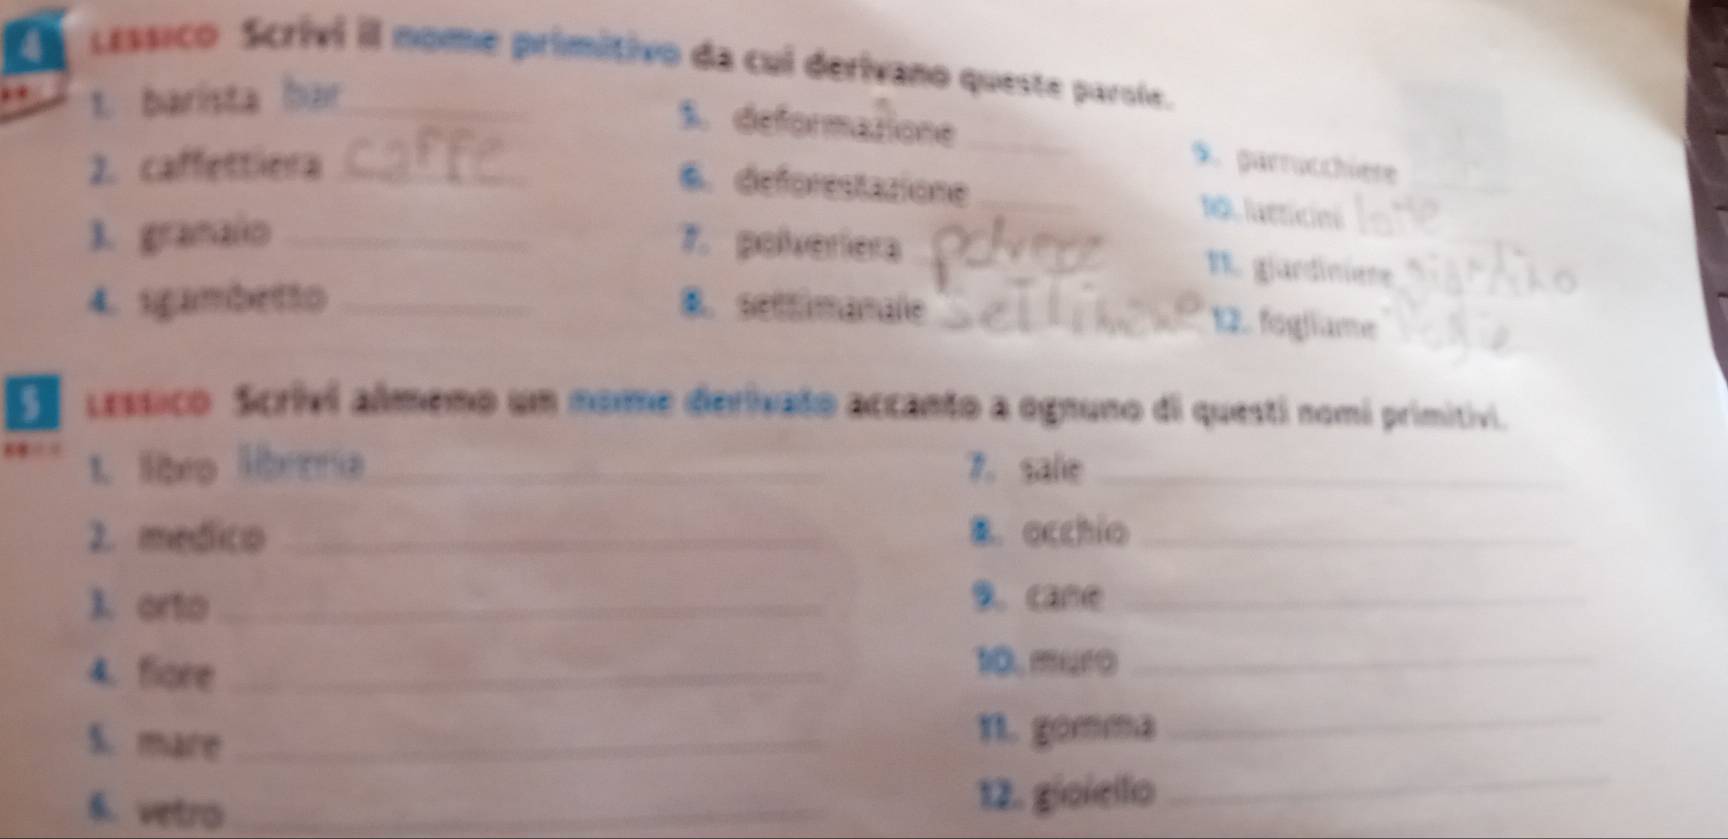 4 LESSICO Scrivi il nome primitivo da cui derivano queste parole.
1. barista bar
2. caffettiera caffe
3. granaio
4. sgambetto
5. deformazione
6. deforestazione
7. polveriera polvere
8. settimanale
9. parrucchiere
10. latticini latte
11. giardiniere
12. fogliame
5 LESSICO Scrivi almeno un nome derivato accanto a ognuno di questi nomi primitivi.
1. libro libreria
2. medico
3. orto
4. fiore
5. mare
6. vetro
7. sale
8. occhio
9. cane
10. muro
11. gomma
12. gioiello